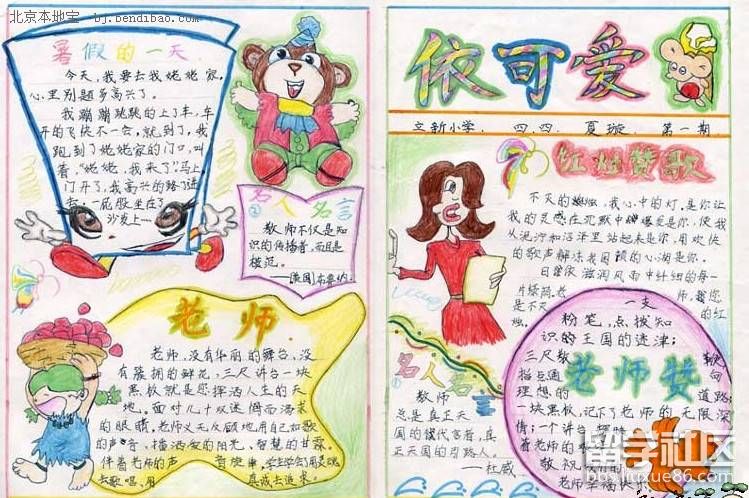 北京本地宝 - bj.bendibao.com
暑假的一天
今天,我要去我姥姥家,
心里别题多高兴了。
我蹦蹦跳跳的上了车,车
开的飞快不一会,就到了,我
跑到了姥姥家的门口,叫
着,"姥姥,我来了"。马上
门开了,我高兴的
去,一屁股坐在了
沙发上……
名人名言
②
教师不仅是知
识的传播者,而且是
模范。
老师
老师,没有华丽的舞台,没
有簇拥的鲜花,三尺讲台一块
黑板就是您挥洒人生的天
地。面对几十双迷惘而渴求
的眼睛,老师义无反顾地用自己如歌
的声音、播洒爱的阳光、智慧的甘霖。
伴着老师的声
去歌唱、用 真诚去追求。
依可爱
立新小学. 四.四. 夏璇. 第一期
红烛赞歌
不灭的 ,我心中的灯,是你让
我的灵感在沉默中爆发是你,使我
从泥泞和沼泽里站起来是你,用欢快
的歌声解冻我国颜的心涧是你。
滋润风雨中纤细的每一
是不灭 的红
烛。
一支
粉笔,点拨知
识的王国的迷津;
三尺
指点通 向
理想的 道路;
一块黑板,记下了老师的无限深
情;一个讲台,
着老师的
敬祝
老师幸福快乐
老师赞
名人名言
①
教师
总是真正天
国的代言者,真
正天国的引路人。
——杜威
留学社区
bbs.liuxue86.com